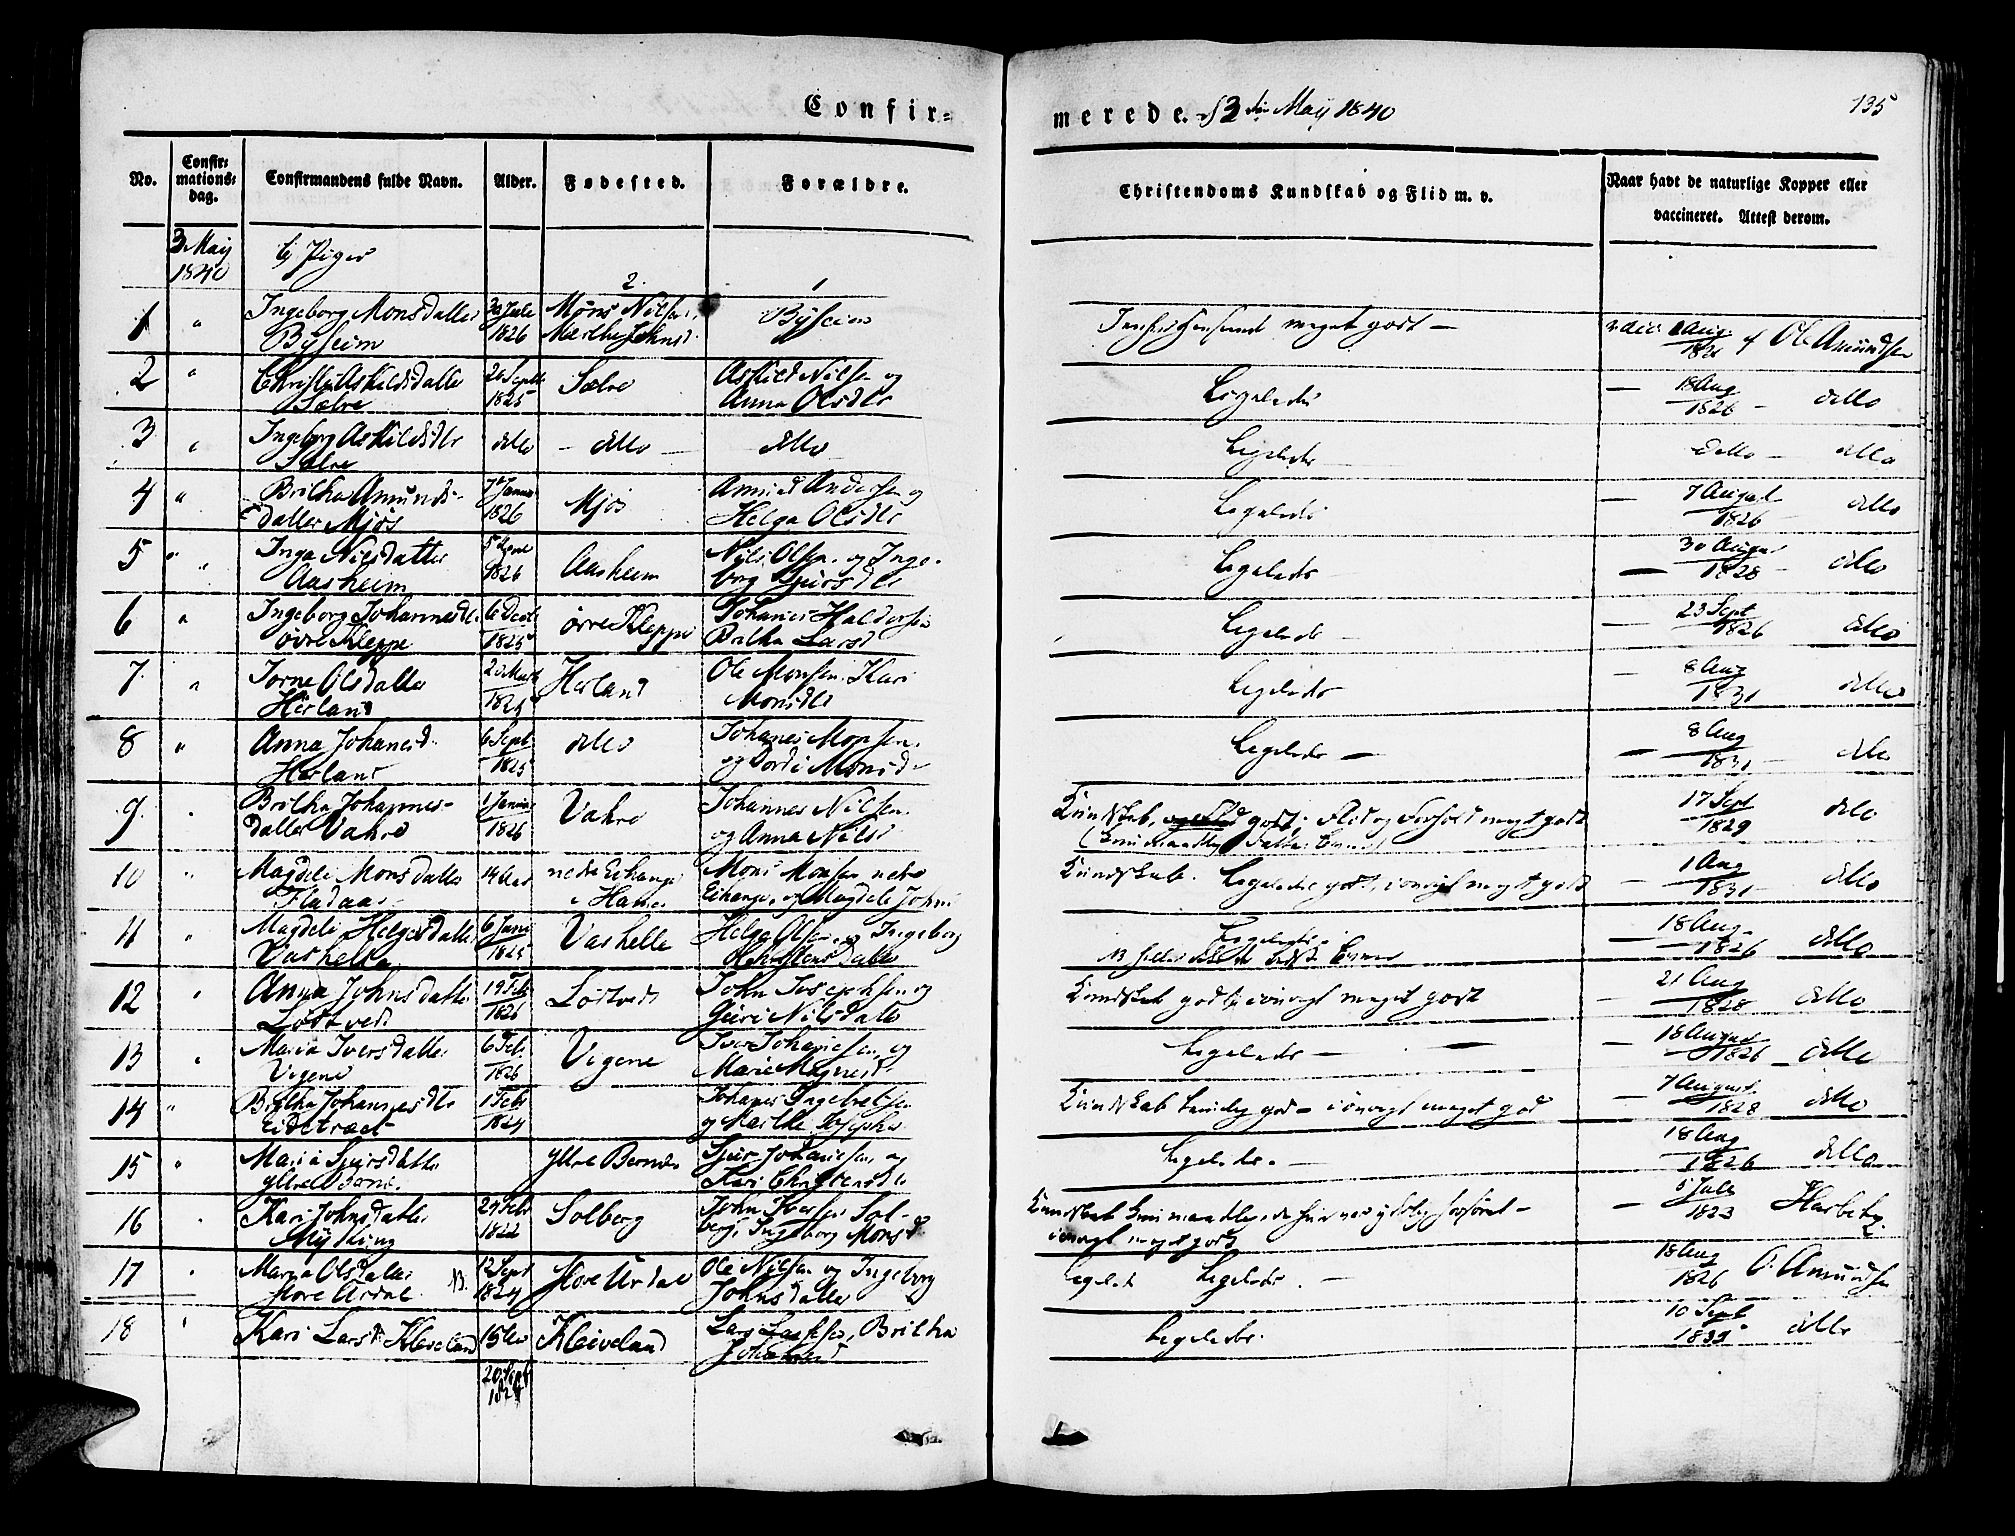 Confir=
merede. d 3 din May 1840
135
No.
Confir=
mations=
dag.
Confirmandens fulde Navn.
Alder.
Fødested.
Forældre.
Christendoms Kundskab og Flid m. v.
Naar havt de naturlige Kopper eller
vaccineret. Attest derom.
3 May
1840
b) Piger
2. 1
1 " Ingeborg Monsdatter
Byseim
1826
Mons Nilsen
Marthe Johnsd
Byseim
meget godt —
Aug
Ole Amundsen
2 " Christi Askildsdatter
Sælve
26 Septb
1825
Sælve
Askild Nilsen og
Anna Olsdtr
Ligeledes
— 18 Aug
1826 — ditto
3 " Ingeborg Askildsdtr
Sælve
ditto — ditto — ditto
Ligeleds —
ditto — ditto
4 " Britha Amunds-
datter Mjøs
7 Januar
1826
Mjøs
Amund Andersen og
Helga Olsdtr
Ligeleds
— 7 August
1826 — ditto
5 " Inga Nilsdatter
Aasheim
1826
Aasheim
Nils Olsen og Inge-
borg Sjursdtr
Ligeleds
30 August
— 1828 — ditto
6 " Ingeborg Johannesdtr
øvre Kleppe
6 Decb
1825
øvre Kleppe
Johannes Haldorsen
Britha Larsd
Ligeleds —
— 23 Sept
1826 ditto
7. " Olsdatter
Herland
1825
Herland
Ole Monsen. Kari
Monsdtr
Ligeleds
— 8 Aug
1831 ditto
8 " Anna Johanesd.
Herland
6 Sept
1825
ditto
Johanes Monsen.
og Dordi Monsd
Ligeleds —
— 8 Aug
1831 — ditto
9. " Britha Johannes-
datter Vahre
1 Januar
1826
Vahre
Johannes Nilsen.
og Anna Nilsd
Kundskab, godt; Flid og Forhold meget godt
17 Sept
1829 ditto
10 " Magdeli Monsdatter
Fladaas
14 Aar
nedre Echanger
i Hammer
Mons Monsen nedre
Echanger, og Magdeli Johns
Kundskab. Ligeledes godt, iøvrigt meget godt
— 1 Aug
1831 — ditto
11 " Magdeli Helgesdatter
Vashelle
6 Juni
1825
Vashelle
Helge Olsen og Ingeborg
Christensdatter
Ligeleds.
— 18 Aug
1826 ditto
12 " Anna Johnsdatter
Lødtvedt
19 Feb
1826
Lødtvedt
John Josephsen og
Guri Nilsdatter
Kundskab godt iøvrigt meget godt
— 21 Aug
1828 ditto
13 " Maria Iversdatter
Vigene
6 Feb.
1826
Vigene
Iver Johannesen, og
Marie Magnesd.
Ligeleds — —
— 18 August
1826 — ditto
14 " Britha Johannesdtr
Eidetræet
1 Feb
1824
Johanes Ingebretsen
og Marthe Josephs
Kundskab temlig god — iøvrigt meget god
— 7 August
1828 ditto
15 " Maria Sjursdatter
yttre
yttre
Sjur Johannesen og
Kari Christensdtr
Ligeleds. —
18 Aug
1826 ditto
16 " Kari Johnsdatter
Myking
24 Feb
1822
Solberg
John Iversen Sol-
berg, Ingeborg Monsd.
Kundskab
iøvrigt meget godt
— 5 Juli
1823 Harbitz
17 " Marna Olsdatter
Hore Urdal. NB.
12 Sept
1824
Hore Urdal
Ole Nilsen og Ingeborg
Johnsdatter
Ligeleds. —
18 Aug
1826 O. Amundsen
18 " Kari Larsd. Kleveland
15 Aar
20 Sept
1824
Kleiveland
Lars Larsen, Britha
Ligeleds.
10 Sept
ditto